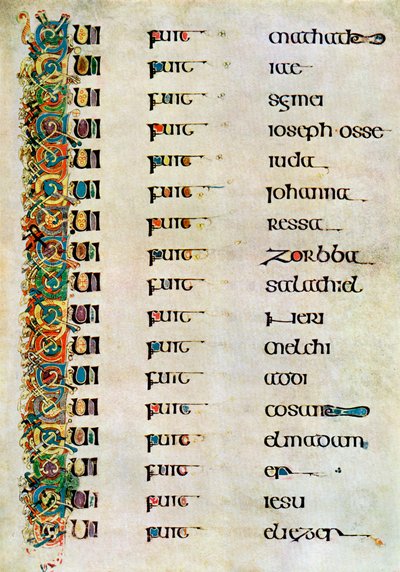 QUI fuit mathath
QUI fuit iae
QUI fuit semei
QUI fuit ioseph osse
QUI fuit iuda
QUI fuit iohanna
QUI fuit ressa
QUI fuit zorbba
QUI fuit salathiel
QUI fuit neri
QUI fuit melchi
QUI fuit addi
QUI fuit cosam
QUI fuit elmadam
QUI fuit er
QUI fuit iesu
QUI fuit eliezer